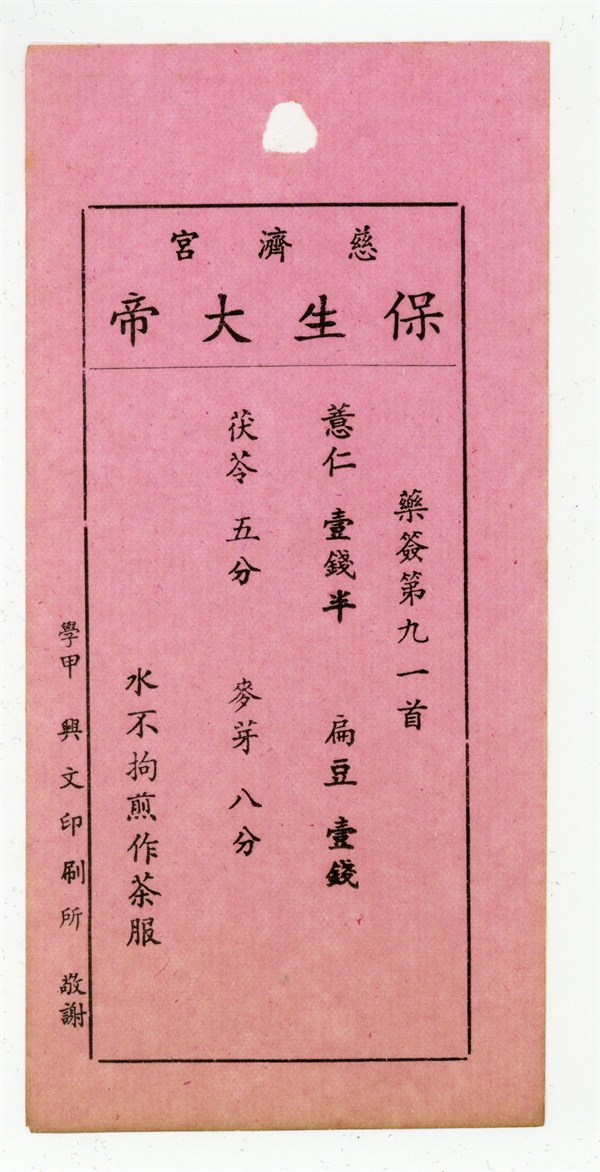 慈濟宮
保生大帝
藥簽第九一首
薏仁 壹錢半 扁豆 壹錢
茯苓 五分 麥芽 八分
水不拘煎作茶服
學甲 興文印刷所 敬謝